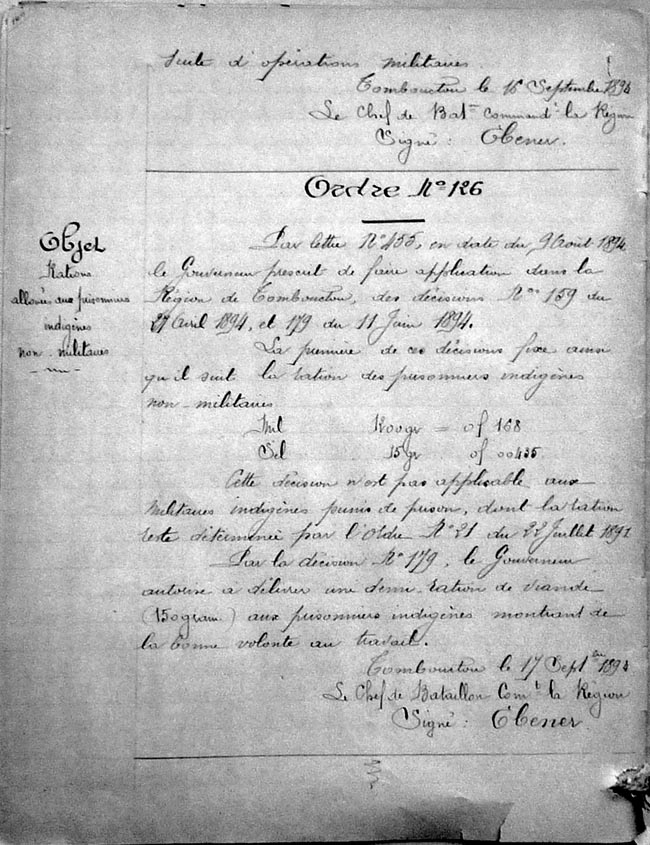 suite d'opérations militaires.
Tombouctou le 16 Septembre 1894
Le Chef de Bat.on command.t la Région
Signé : Ebener.
Ordre N° 126
Objet
Rations
allouées aux prisonniers
indigènes
non-militaires
Par lettre N° 455, en date du 9 Août 1894
le Gouverneur prescrit de faire application dans la
Région de Tombouctou, des décisions Nos 159 du
27 Avril 1894, et 179 du 11 Juin 1894.
La première de ces décisions fixe ainsi
qu'il suit la ration des prisonniers indigènes
non-militaires
Mil 1200gr = 0f 168
Sel 15gr 0f 00435
Cette décision n'est pas applicable aux
militaires indigènes punis de prison, dont la ration
reste déterminée par l'Ordre N° 21 du 22 Juillet 1891
Par la décision N° 179, le Gouverneur
autorise a délivrer une demi-ration de viande
(150 gram.) aux prisonniers indigènes montrant de
la bonne volonté au travail.
Tombouctou le 17 Septbre 1894
Le Chef de Bataillon Com.t la Région
Signé : Ebener